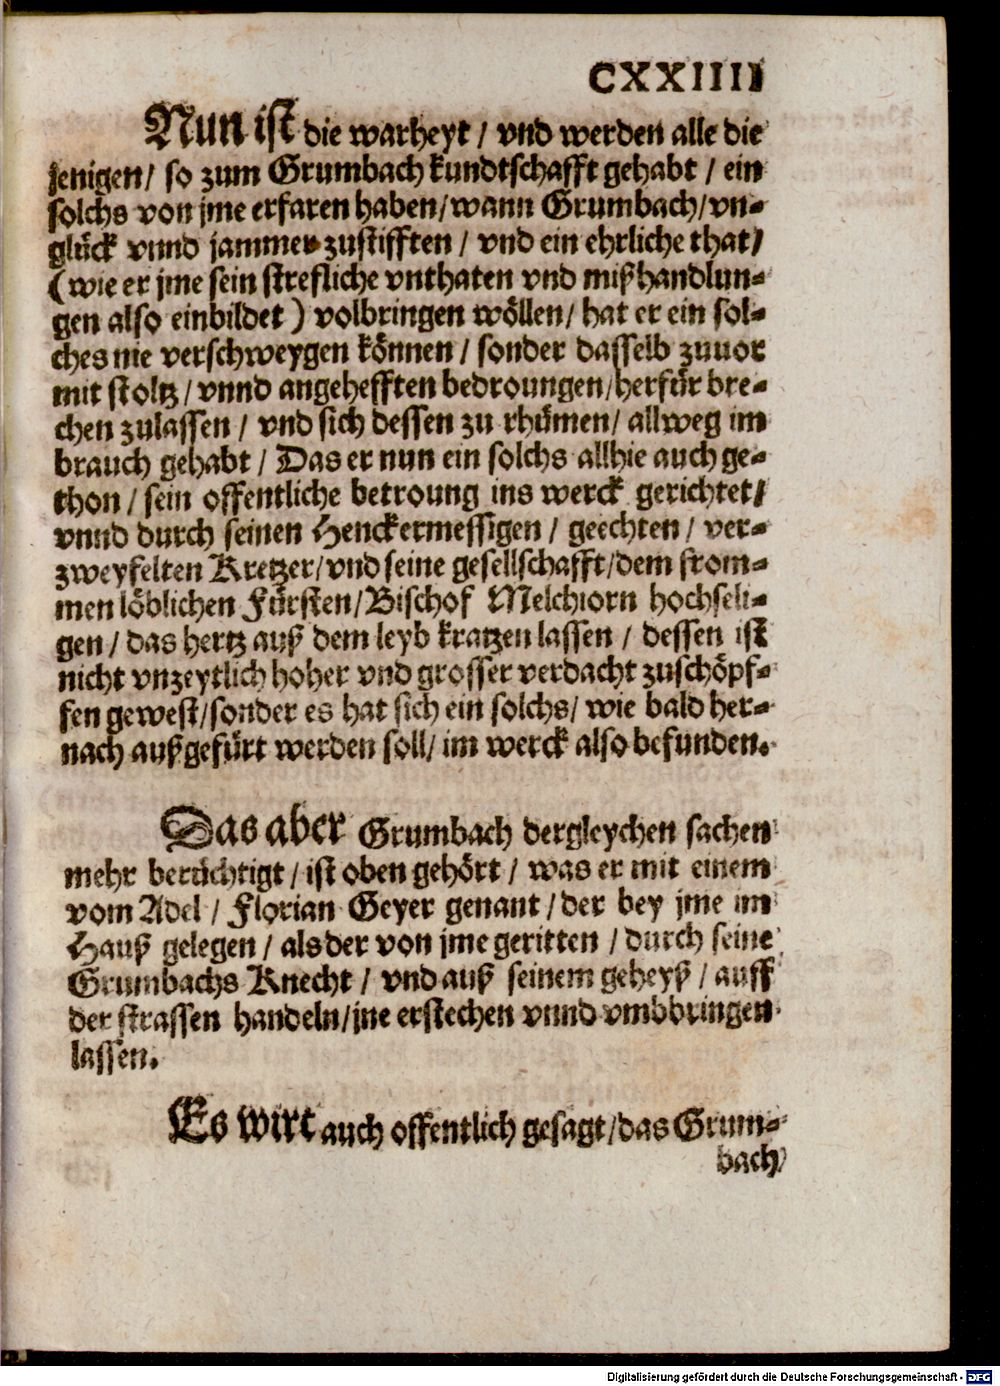 CXXIIII
Nun ist die warheyt / vnd werden alle die
jenigen / so zum Grumbach kundtschafft gehabt / ein
solchs von jme erfaren haben / wann Grumbach / vn-
glück vnnd jammer zustifften / vnd ein ehrliche that /
(wie er jme sein strefliche vnthaten vnd mißhandlun-
gen also einbildet) volbringen wöllen / hat er ein sol-
ches nie verschweygen können / sonder dasselb zuuor
mit stoltz / vnnd angehefften bedroungen / herfür bre-
chen zulassen / vnd sich dessen zu rhümen / allweg im
brauch gehabt / Das er nun ein solchs allhie auch ge-
thon / sein offentliche betroung ins werck gerichtet /
vnnd durch seinen Henckermessigen / geechten / ver-
zweyfelten Kretzer / vnd seine gesellschafft / dem from-
men löblichen Fürsten / Bischof Melchiorn hochseli-
gen / das hertz auß dem leyb kratzen lassen / dessen ist
nicht vnzeytlich hoher vnd grosser verdacht zuschöpf-
fen gewest / sonder es hat sich ein solchs / wie bald her-
nach außgefürt werden soll / im werck also befunden.
Das aber Grumbach dergleychen sachen
mehr berüchtigt / ist oben gehört / was er mit einem
vom Adel / Florian Geyer genant / der bey jme im
Hauß gelegen / als der von jme geritten / durch seine
Grumbachs Knecht / vnd auß seinem geheyß / auff
der strassen handeln / jne erstechen vnnd vmbbringen
lassen.
Es wirt auch offentlich gesagt / das Grum-
bach
Digitalisierung gefördert durch die Deutsche Forschungsgemeinschaft - DFG